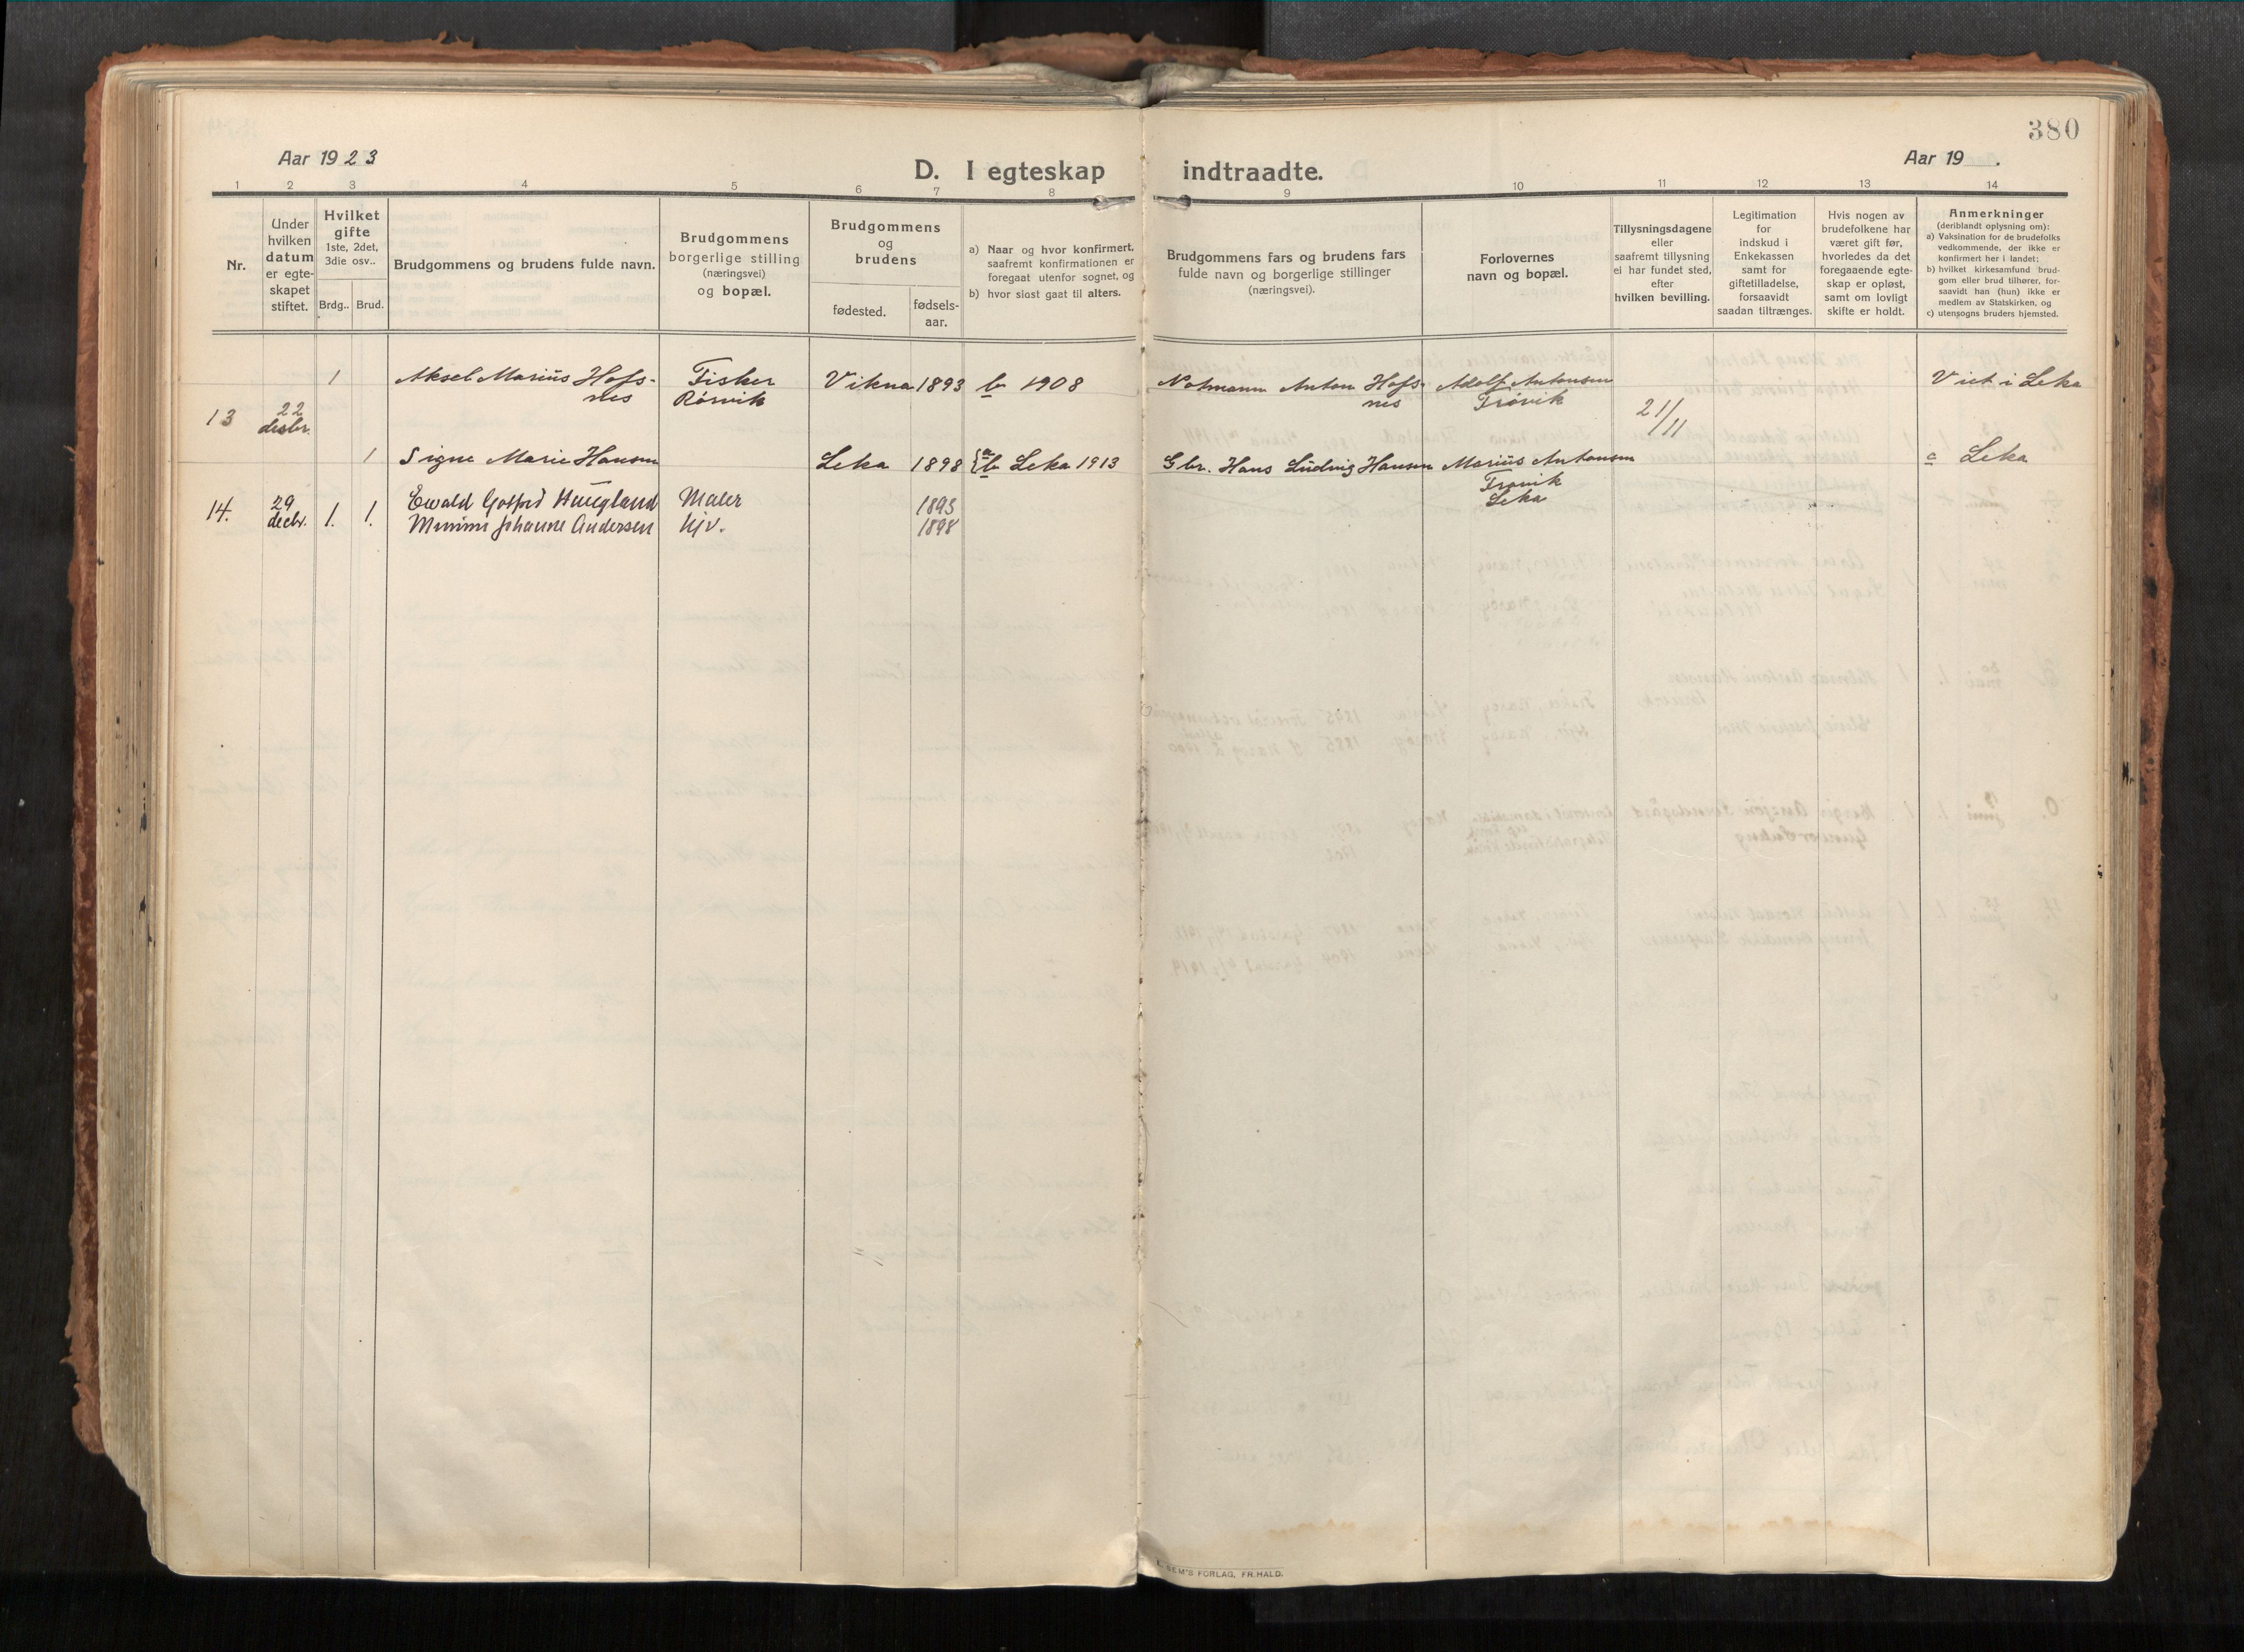 380
Aar 1923
D. I egteskap indtraadte.
Aar 19 .
1 2 3 4 5 6 7 8 9 10 11 12 13 14
Nr.
Under
hvilken
datum
er egte-
skapet
stiftet.
Hvilket
gifte
1ste, 2det,
3die osv..
Brdg.. Brud.
Brudgommens og brudens fulde navn.
Brudgommens
borgerlige stilling
(næringsvei)
og bopæl.
Brudgommens
og
brudens
fødested.
fødsels-
aar.
a) Naar og hvor konfirmert,
saafremt konfirmationen er
foregaat utenfor sognet, og
b) hvor sidst gaat til alters.
Brudgommens fars og brudens fars
fulde navn og borgerlige stillinger
(næringsvei).
Forlovernes
navn og bopæl.
Tillysningsdagene
eller
saafremt tillysning
ei har fundet sted,
efter
hvilken bevilling.
Legitimation
for
indskud i
Enkekassen
samt for
giftetilladelse,
forsaavidt
saadan tiltrænges.
Hvis nogen av
brudefolkene har
været gift før,
hvorledes da det
foregaaende egte-
skap er opløst,
samt om lovligt
skifte er holdt.
Anmerkninger
(deriblandt oplysning om):
a) Vaksination for de brudefolks
vedkommende, der ikke er
konfirmert her i landet;
b) hvilket kirkesamfund brud-
gom eller brud tilhører, for-
saavidt han (hun) ikke er
medlem av Statskirken, og
c) utensogns bruders hjemsted.
1 Aksel Marius Hofs- Fisker Vikna 1893 b 1908 Notmann Anton Hofs- Adolf Antonsen Viet i Leka
nes Rörvik nes Frövik
13 22 desbr. 21/11
1 Signe Marie Hansen Leka 1898 {a b Leka 1913 Gbr. Hans Ludvig Hansen Marius Antonsen c Leka
Frövik
Leka
14. 29 decbr. 1. 1. Ewald Gotfred Haugland Maler 1893
Minimi Johanne Andersen Hjv. 1898
SEM'S FORLAG, FR.HALD.